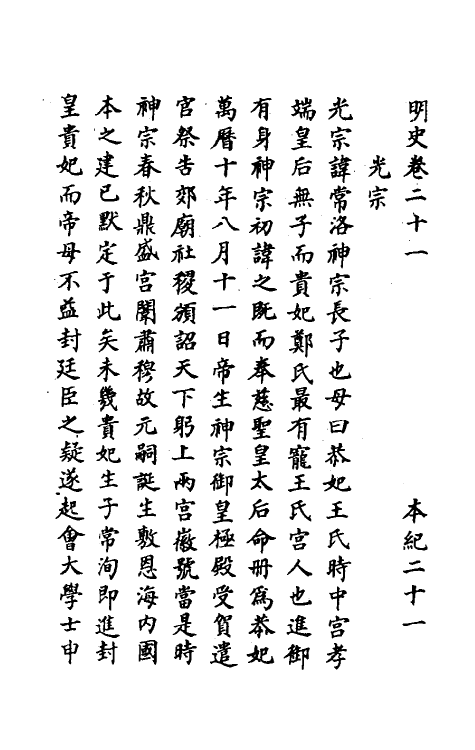 明史卷二十一　本紀二十一
光宗
光宗諱常洛神宗長子也母曰恭妃王氏時中宮孝
端皇后無子而貴妃鄭氏最有寵王氏宮人也進御
有身神宗初諱之既而奉慈聖皇太后命冊為恭妃
萬曆十年八月十一日帝生神宗御皇極殿受賀遣
官祭告郊廟社稷頒詔天下躬上兩宮徽號當是時
神宗春秋鼎盛宮闈肅穆故元嗣誕生敷恩海內國
本之建已默定于此矣未幾貴妃生子常洵即進封
皇貴妃而帝母不益封廷臣之疑遂起會大學士申